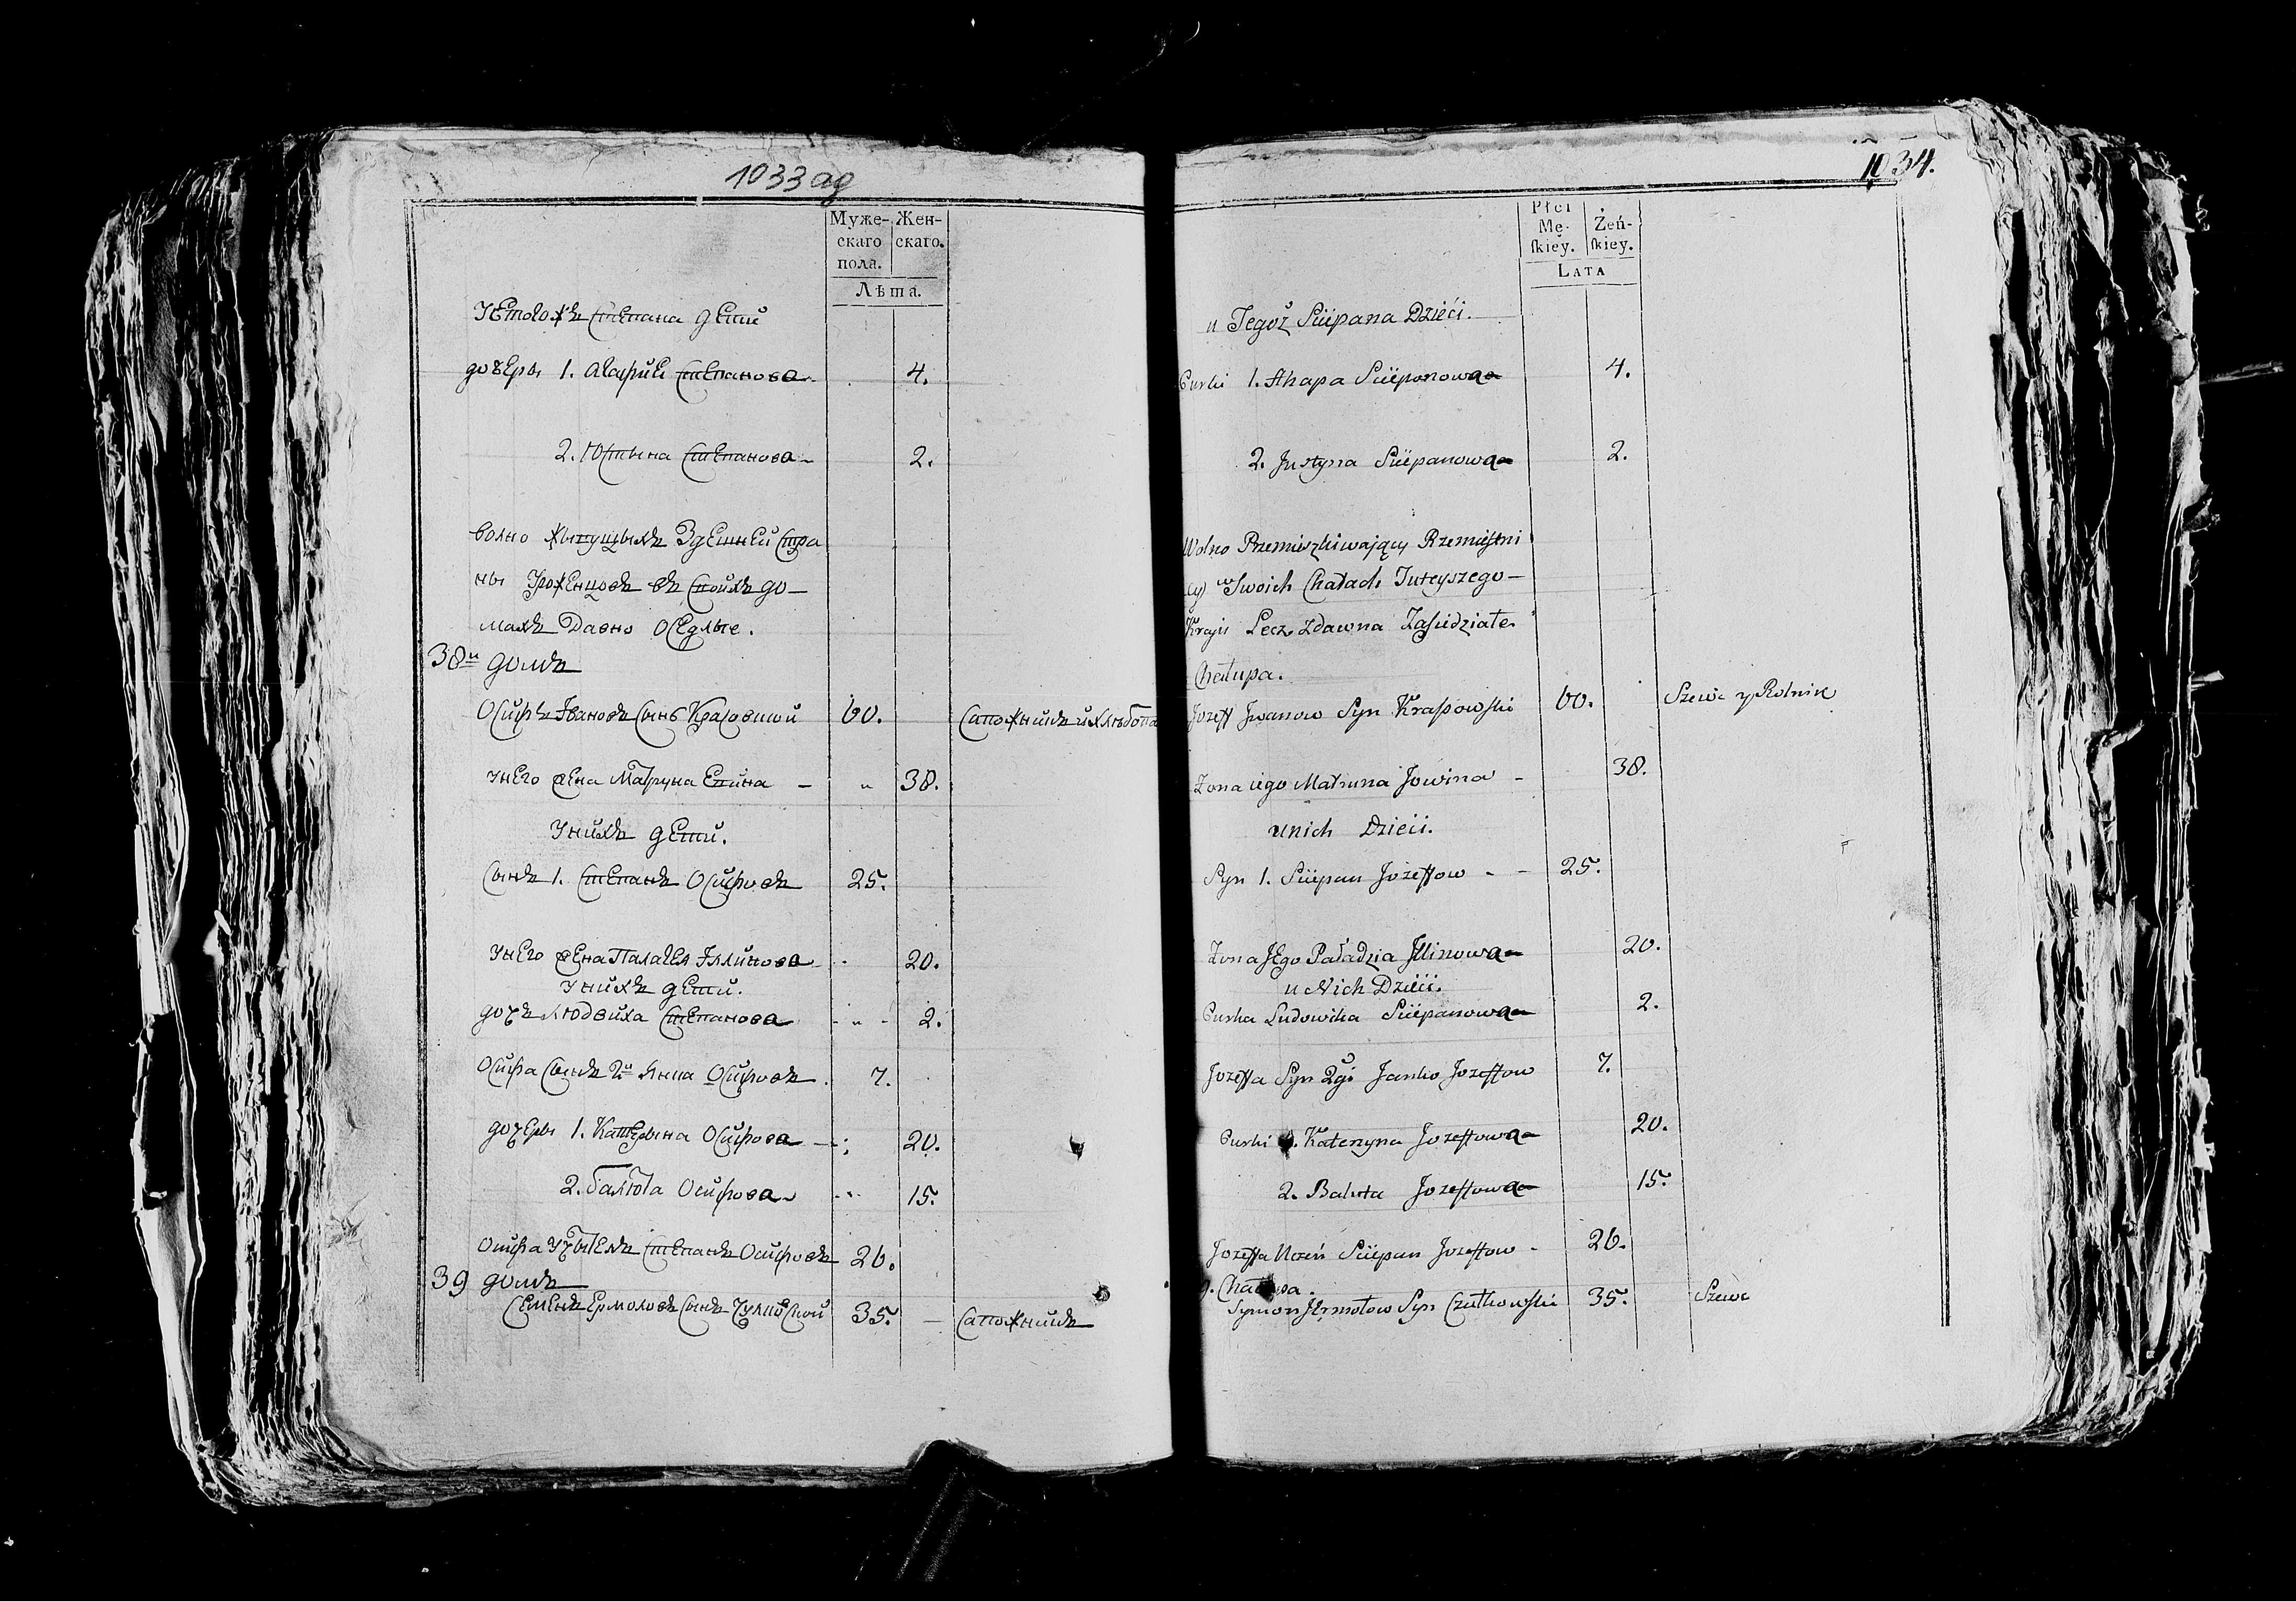 1033 ag
Муже- Жен-
скаго скаго.
пола.
Лѣта.
Уегожъ Степана дети
дочеры 1. Агафие Степанова 4.
2. Юстына Степанова 2.
волно жывущыхъ Здешней Стра
ны Уроженцовъ въ Своихъ до-
махъ Давно Оседлые.
38й домъ
Осифъ Ивановъ Сынъ 60. Сапожникъ и
Унего жена Матруна 38.
Унихъ дети.
Сынъ 1. Степанъ Осифовъ 25.
Унего жена Палагея 20.
Унихъ дети.
дочъ Людвика Степанова 2.
Осифа Сынъ 2й Янка Осифовъ 7.
дочеры 1. Катерына Осифова 20.
2. Балюта Осифова 15.
Осифа Степанъ Осифовъ 26.
39 домъ
Семенъ Ермоловъ Сынъ 35. Сапожникъ
1034.
Płci
Mę- Żeń-
ſkiey. ſkiey.
Lata
u Tegoż Sciepana Dzieci.
Curki 1. Ahapa Sciepanowa 4.
2. Justyna Sciepanowa 2.
Wolno Przemieszkiwający Rzemieſlni
cy w Swoich Chatach Tuteyszego
Kraju Lecz zdawna Zasiedziałe
Chałupa.
Jozeff Jwanow Syn Kraſowski 60. Szewc y Rolnik
Zona iego Matruna Jowina 38.
u nich Dzieci.
Syn 1. Sciepan Jozeffow 25.
Zona Jego Paładzia Jllinowa 20.
u Nich Dzieci.
Curka Ludowika Sciepanowa 2.
Jozeffa Syn 2gi Janko Jozeffow 7.
Curki 1. Katerzyna Jozeffowa 20.
2. Baluta Jozeffowa 15.
Jozeffa Uczeń Sciepan Jozeffow 26.
9. Chałupa.
Symon Jermołow Syn Czułkowski 35. Szewc